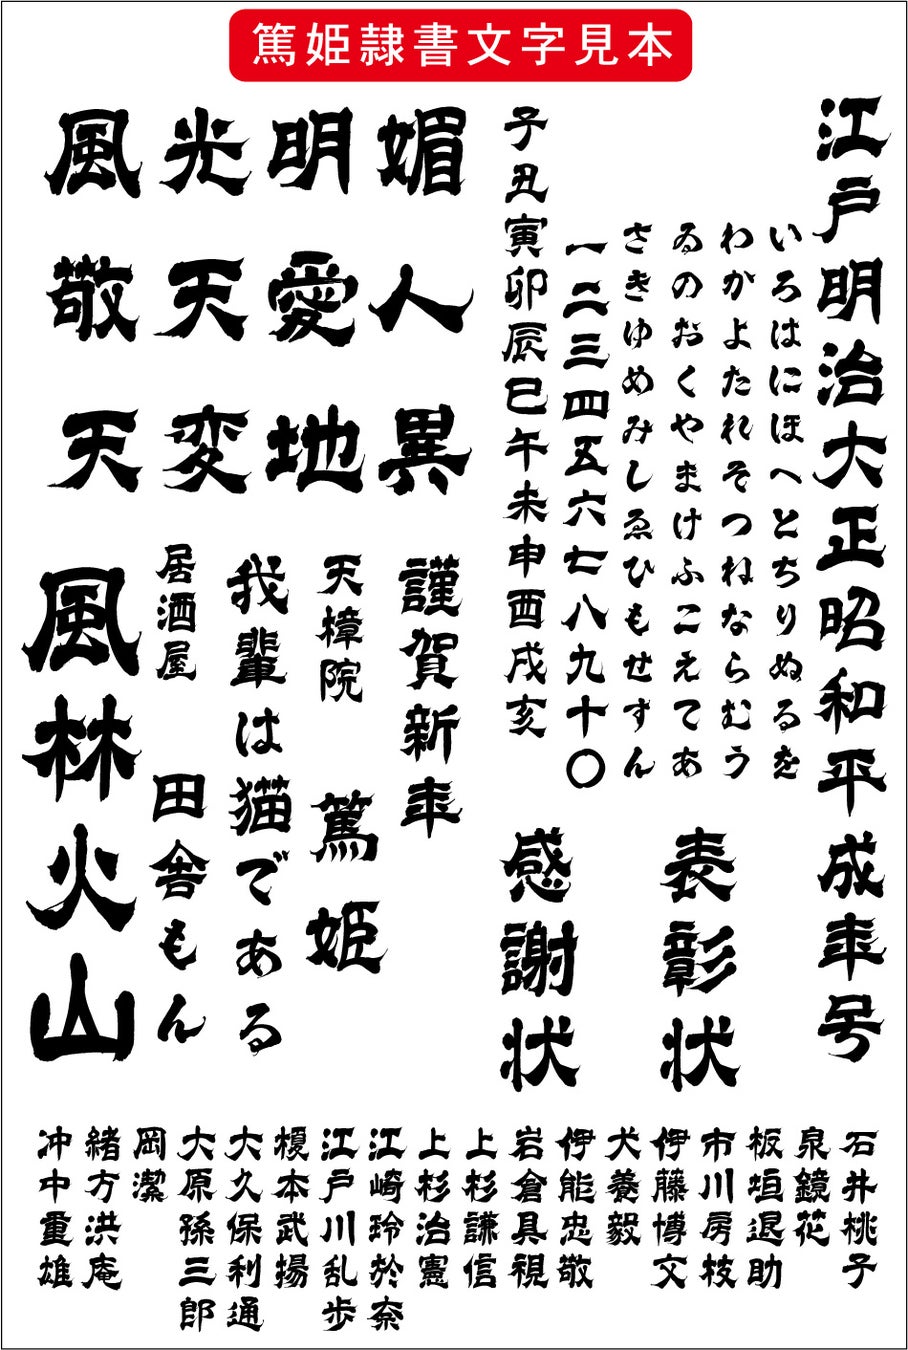 篤姫隷書文字見本
江戸明治大正昭和平成年号
いろはにほへとちりぬるを
わかよたれそつねならむう
ゐのおくやまけふこえてあ
さきゆめみしゑひもせすん
一二三四五六七八九十〇
子丑寅卯辰巳午未申酉戌亥
表彰状
感謝状
風光明媚
敬天愛人
天変地異
謹賀新年
天樟院
篤姫
我輩は猫である
居酒屋
田舎もん
風林火山
石井桃子
泉鏡花
板垣退助
市川房枝
伊藤博文
犬養毅
伊能忠敬
岩倉具視
上杉謙信
上杉治憲
江崎玲於奈
江戸川乱歩
榎本武揚
大久保利通
大原孫三郎
岡潔
緒方洪庵
沖中重雄